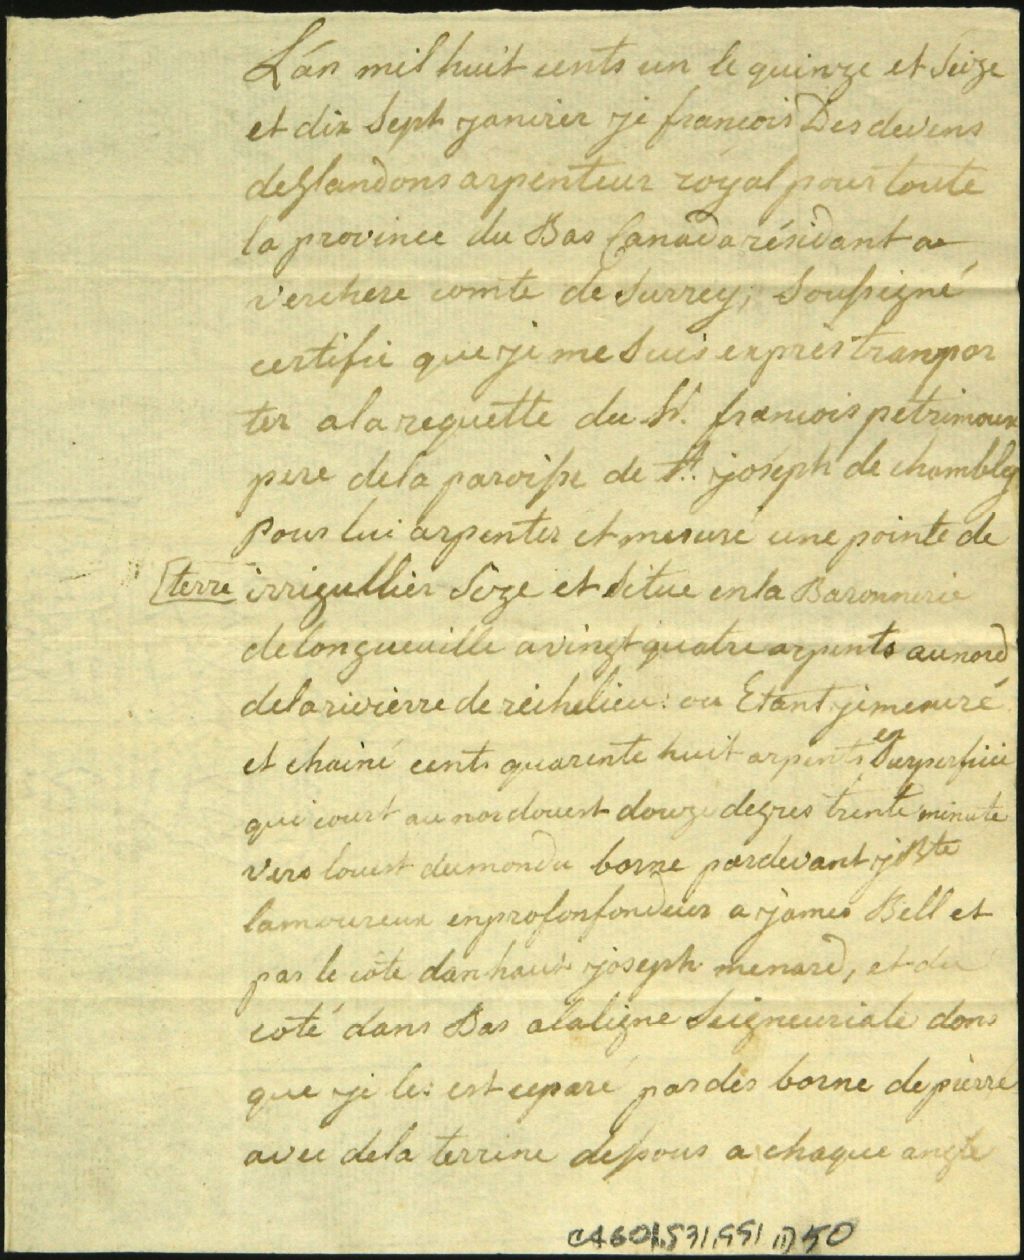 L'án mil huit cents un le quinze et Seize
et dix Sept janvier je francois Desdevens
deGlandons arpenteur róyal pour toute
la province du Bas Canada résidant a
verchere comte de Surrey; Soussigné
certifie que je me Suis exprès tranpor
ter a la requette du Sr. francois petrimoux
pere de la paroisse de St. joseph de chambly
Pour lui arpenter et mesuré une pointe de
terre irrigullier Size et Situe en la Baronnerie
de longueuille a vingt quatre arpents au nord
de la rivierre de réchelieu: ou Etant je mesuré
et chainé cents quarente huit arpents en Surperficie
qui court au nordouest douze degres trente minute
vers louest du monde borne pardevant jBte
lamoureux en profonfondeur a james Bell et
par le côté dan haut joseph menard, et du
coté dans Bas a la ligne Seigneuriale dons
que je les est ceparé par des borne de pierre
avec de la terrine dessous a chaque angle
CA601,S71,SS1,D50